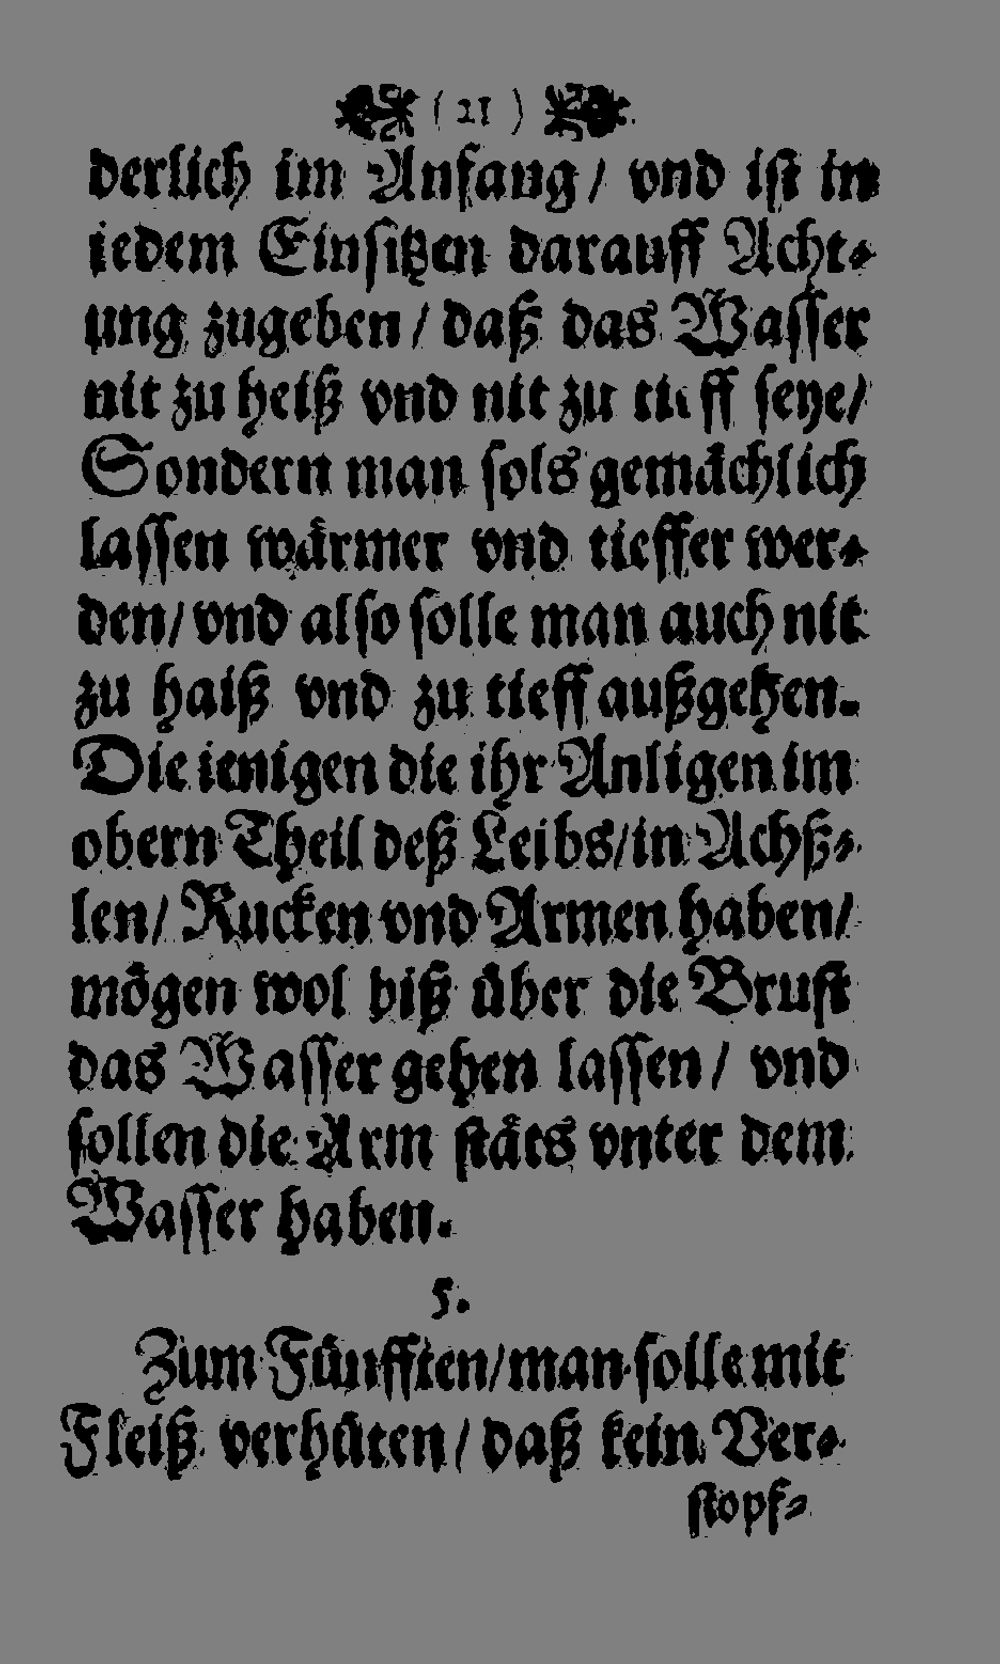 ( 21 )
derlich im Anfang/ vnd ist in
iedem Einsitzen darauff Acht-
ung zugeben/ daß das Wasser
nit zu heiß vnd nit zu tieff seye/
Sondern man sols gemåchlich
lassen wårmer vnd tieffer wer-
den/ vnd also solle man auch nit
zu haiß vnd zu tieff außgehen.
Die ienigen die ihr Anligen im
obern Theil deß Leibs/ in Achß-
len/ Rucken vnd Armen haben/
mögen wol biß über die Brust
das Wasser gehen lassen/ vnd
sollen die Arm ståts vnter dem
Wasser haben.
5.
Zum Fünfften/ man solle mit
Fleiß verhüten/ daß kein Ver-
stopf-